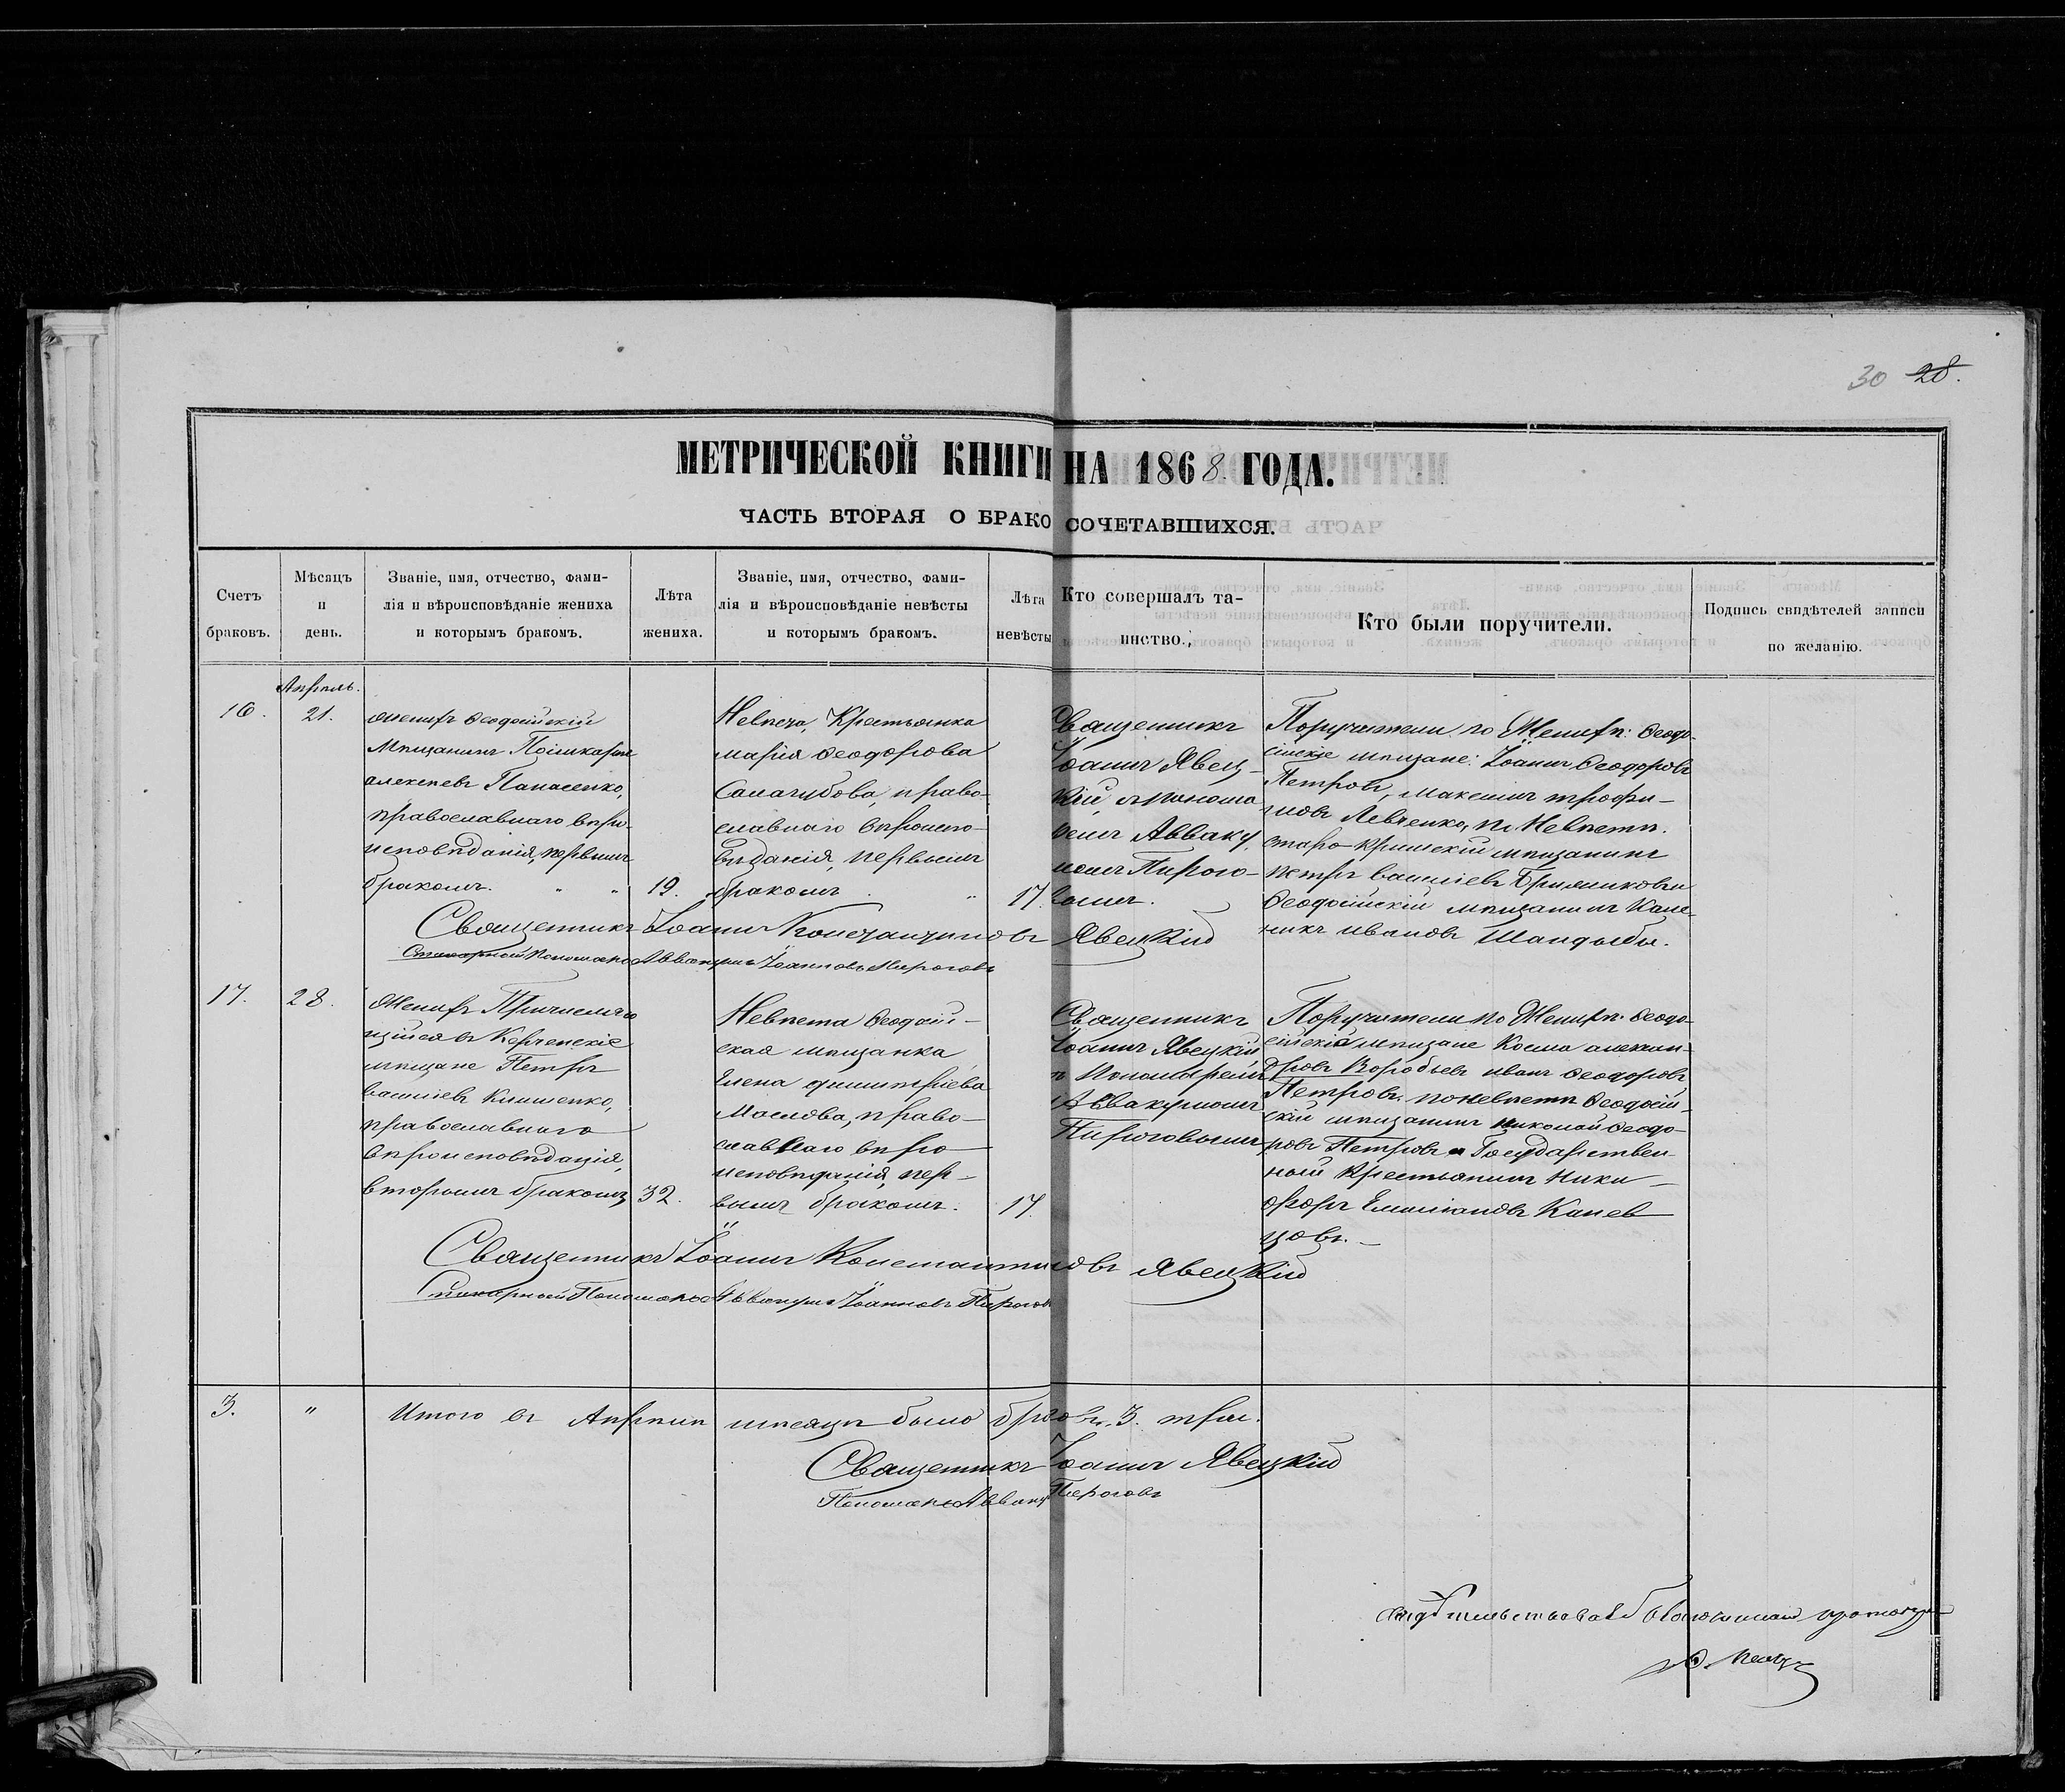 30 28.
МЕТРИЧЕСКОЙ КНИГИ НА 1868 ГОДА.
ЧАСТЬ ВТОРАЯ О БРАКОСОЧЕТАВШИХСЯ.
Счетъ
браковъ.
Мѣсяцъ
и
день.
Званіе, имя, отчество, фами-
лія и вѣроисповѣданіе жениха
и которымъ бракомъ.
Лѣта
жениха.
Званіе, имя, отчество, фами-
лія и вѣроисповѣданіе невѣсты
и которымъ бракомъ.
Лѣта
невѣсты
Кто совершалъ та-
инство.
Кто были поручители.
Подпись свидѣтелей записи
по желанію.
16.
Апрѣль.
21.
Женихъ Ѳеодосійскій
Мѣщанинъ Поликарпъ
алексѣевъ Панасенко,
православнаго вѣро-
исповѣданія, первымъ
бракомъ. " "
19.
Невѣста, Крестьянка
марія Ѳеодорова
православ-
славнаго вѣроиспо-
вѣданія, первымъ
бракомъ "
17.
Священникъ
Іоаннъ Явец-
кій съ понома-
ремъ Авваку-
момъ Пирого-
вымъ.
Поручители по Женихѣ: Ѳеодо-
сійскіе мѣщане: Іоаннъ Ѳеодоровъ
Петровъ, максимъ трофи-
мовъ Левченко, по Невѣстѣ.
старо-крымскій мѣщанинъ
петръ васильевъ
Ѳеодосійскій мѣщанинъ
ивановъ
Священникъ Іоаннъ Константиновъ Явецкій
Пономарь Аввакумъ Іоанновъ Пироговъ
17.
28.
Женихъ Причисляю-
щійся въ Керченскіе
мѣщане Петръ
васильевъ Клименко,
православнаго
вѣроисповѣданія,
вторымъ бракомъ
32.
Невѣста Ѳеодосій-
ская мѣщанка
Елена димитріева
Маслова, право-
славнаго вѣро-
исповѣданія, пер-
вымъ бракомъ.
17.
Священникъ
Іоаннъ Явецкій
съ Пономаремъ
Аввакумомъ
Пироговымъ
Поручители по Женихѣ: Ѳеодо-
сійскіе мѣщане Косма алексан-
дровъ Воробьевъ иванъ Ѳеодоровъ
Петровъ. по невѣстѣ Ѳеодосій-
скій мѣщанинъ николай Ѳеодо-
ровъ Петровъ и Государствен-
ный Крестьянинъ Ники-
форъ Емиліановъ Канев-
цовъ.
Священникъ Іоаннъ Константиновъ Явецкій
Пономарь Аввакумъ Іоанновъ Пироговъ
3. " Итого въ Апрѣлѣ мѣсяцѣ было браковъ. 3. три.
Священникъ Іоаннъ Явецкій
Пономарь Аввакумъ Пироговъ
Свидѣтельствовалъ Благочинный